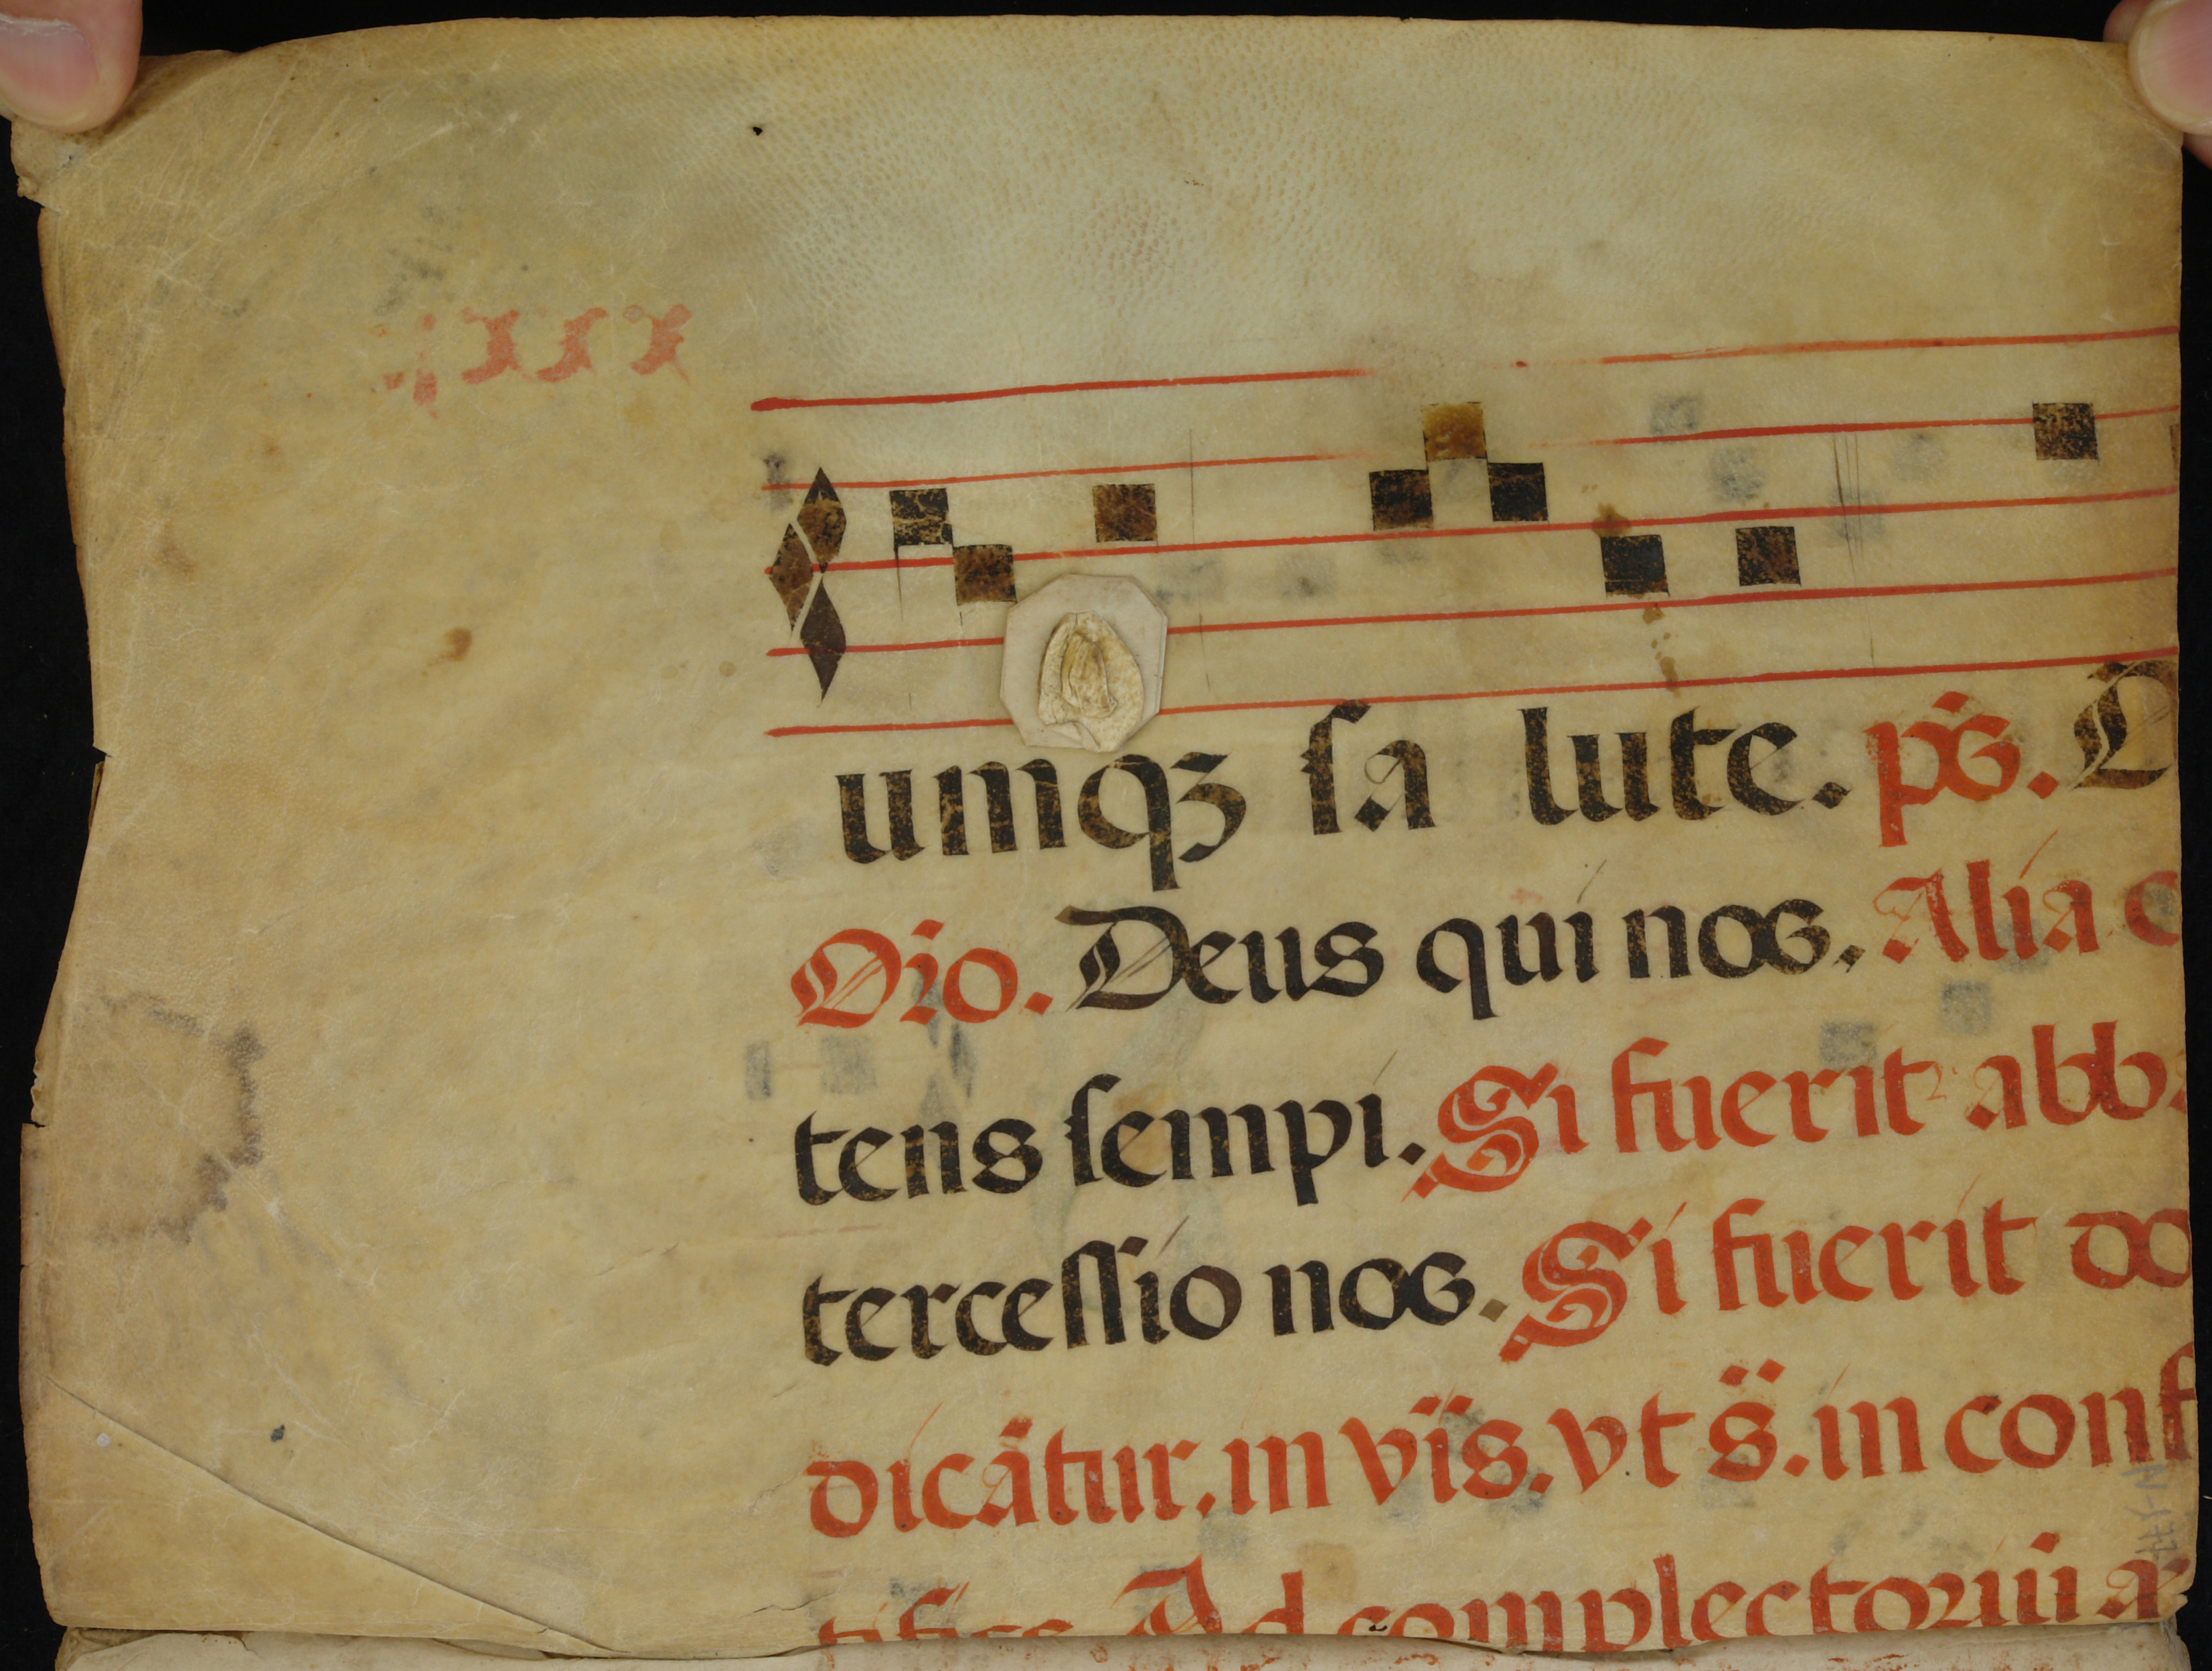 umqꝫ ſa lute. pŝ. D
Oıo. Deus qui nos. Alia o
tens ſempi. Si fuerit abb
terceſſio nos. Si fuerit do
dicãtur. in viis. vt s̈. in conf
Ad complectoriũ a